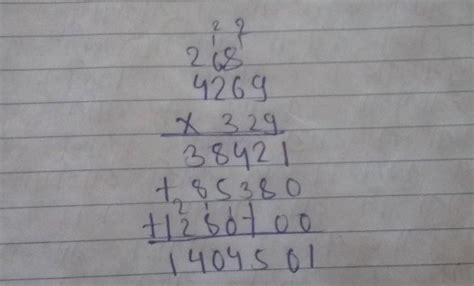 2 7
268
4269
x 329
38421
+ 85380
+1280700
1404501